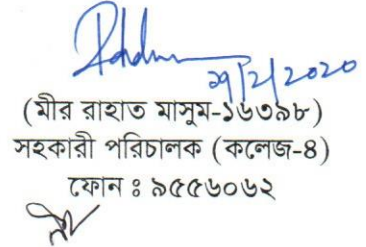 ২৭/2/2020
(মীর রাহাত মাসুম-১৬৩৯৮)
সহকারী পরিচালক (কলেজ-৪)
ফোন ঃ ৯৫৫৬০৬২